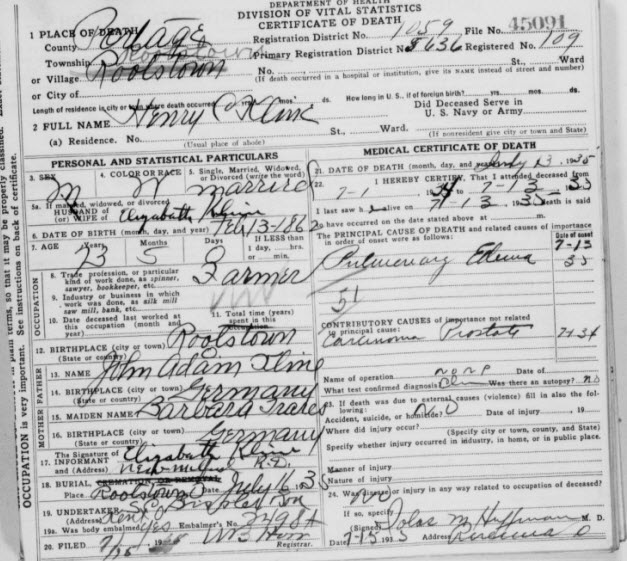 DEPARTMENT OF HEALTH
DIVISION OF VITAL STATISTICS
CERTIFICATE OF DEATH
1 PLACE OF DEATH
County Portage Registration District No. 1059 File No. 45091
Township Rootstown Primary Registration District No. 5636 Registered No. 109
or Village Rootstown No. St., Ward
(If death occurred in a hospital or institution, give its NAME instead of street and number)
or City of
Length of residence in city or town where death occurred yrs. mos. ds. How long in U.S., if of foreign birth? yrs. mos. ds.
2 FULL NAME Henry C Kline Did Deceased Serve in U. S. Navy or Army
(a) Residence. No. St., Ward.
(Usual place of abode) (If nonresident give city or town and State)
PERSONAL AND STATISTICAL PARTICULARS
3. SEX M 4. COLOR OR RACE W 5. Single, Married, Widowed, or Divorced (write the word) married
5a. If married, widowed, or divorced
HUSBAND of
(or) WIFE of Elizabeth Kline
6. DATE OF BIRTH (month, day, and year) Feb 13-1862
7. AGE Years Months Days If LESS than 1 day, hrs. or min.
73 5
OCCUPATION
8. Trade, profession, or particular kind of work done, as spinner, sawyer, bookkeeper, etc. Farmer
9. Industry or business in which work was done, as silk mill saw mill, bank, etc.
10. Date deceased last worked at this occupation (month and year)
11. Total time (years) spent in this occupation
12. BIRTHPLACE (city or town) Rootstown
(State or country)
FATHER
13. NAME John Adam Kline
14. BIRTHPLACE (city or town) Germany
(State or country)
MOTHER
15. MAIDEN NAME Barbara
16. BIRTHPLACE (city or town) Germany
(State or country)
The Signature of
17. INFORMANT Elizabeth Kline
and (Address) New Milford R.D.
18. BURIAL, CREMATION, OR REMOVAL
Place Rootstown O Date July 16 35
19. UNDERTAKER
Kent O
19a. Was body embalmed Yes Embalmer's No. 3498A
20. FILED Registrar.
MEDICAL CERTIFICATE OF DEATH
21. DATE OF DEATH (month, day, and year) July 13 1935
22. I HEREBY CERTIFY, That I attended deceased from
7-1 1934 7-13 35
I last saw h alive on 7-13 1935 death is said
to have occurred on the date stated above at m.
The PRINCIPAL CAUSE OF DEATH and related causes of importance in order of onset were as follows: Date of onset
Pulmonary Edema 7-13 35
51
CONTRIBUTORY CAUSES of importance not related to principal cause:
Carcinoma Prostate 7-34
Name of operation none Date of
What test confirmed diagnosis Was there an autopsy? No
23. If death was due to external causes (violence) fill in also the following:
Accident, suicide, or homicide? No Date of injury 19
Where did injury occur?
(Specify city or town, county, and State)
Specify whether injury occurred in industry, in home, or in public place.
Manner of injury
Nature of injury
24. Was disease or injury in any way related to occupation of deceased?
no
If so, specify
(Signed) M Hoffman M. D.
Date 7-15 1935 Address Ravenna O
OCCUPATION is very important. See instructions on back of certificate.
in plain terms, so that it may be properly classified.